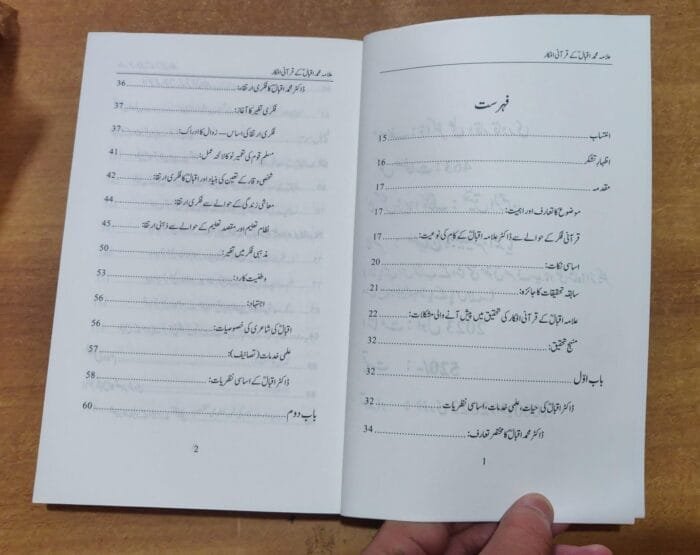 علامہ محمد اقبالؒ کے قرآنی افکار
فہرست
انتساب ........ 15
اظہارِ تشکر ........ 16
مقدمہ ........ 17
موضوع کا تعارف اور اہمیت: ........ 17
قرآنی فکر کے حوالے سے ڈاکٹر علامہ اقبالؒ کے کام کی نوعیت: ........ 17
اساسی نکات: ........ 20
سابقہ تحقیقات کا جائزہ: ........ 21
علامہ اقبالؒ کے قرآنی افکار کی تحقیق میں پیش آنے والی مشکلات: ........ 22
منہج تحقیق: ........ 32
باب اوّل ........ 32
ڈاکٹر اقبالؒ کی، حیات، علمی خدمات، اساسی نظریات ........ 32
ڈاکٹر محمد اقبالؒ کا مختصر تعارف: ........ 34
1
علامہ محمد اقبالؒ کے قرآنی افکار
ڈاکٹر محمد اقبالؒ کا فکری ارتقاء: ........ 36
فکری تغیر کا آغاز: ........ 37
فکری ارتقا کی اساس – زوال کا ادراک: ........ 37
مسلم قوم کی تعمیرِ نو کا لائحہ عمل: ........ 41
شخصی وقار کے تعین کی بنیاد اور اقبالؒ کا فکری ارتقاء: ........ 42
معاشی زندگی کے حوالے سے فکری ارتقاء: ........ 44
نظامِ تعلیم اور مقصد تعلیم کے حوالے سے ذہنی ارتقاء: ........ 45
مذہبی فکر میں تغیر: ........ 50
وطنیت کا رد: ........ 53
اجتہاد: ........ 56
اقبالؒ کی شاعری کی خصوصیات: ........ 56
علمی خدمات (تصانیف): ........ 57
ڈاکٹر اقبالؒ کے اساسی نظریات: ........ 58
باب دوم ........ 60
2